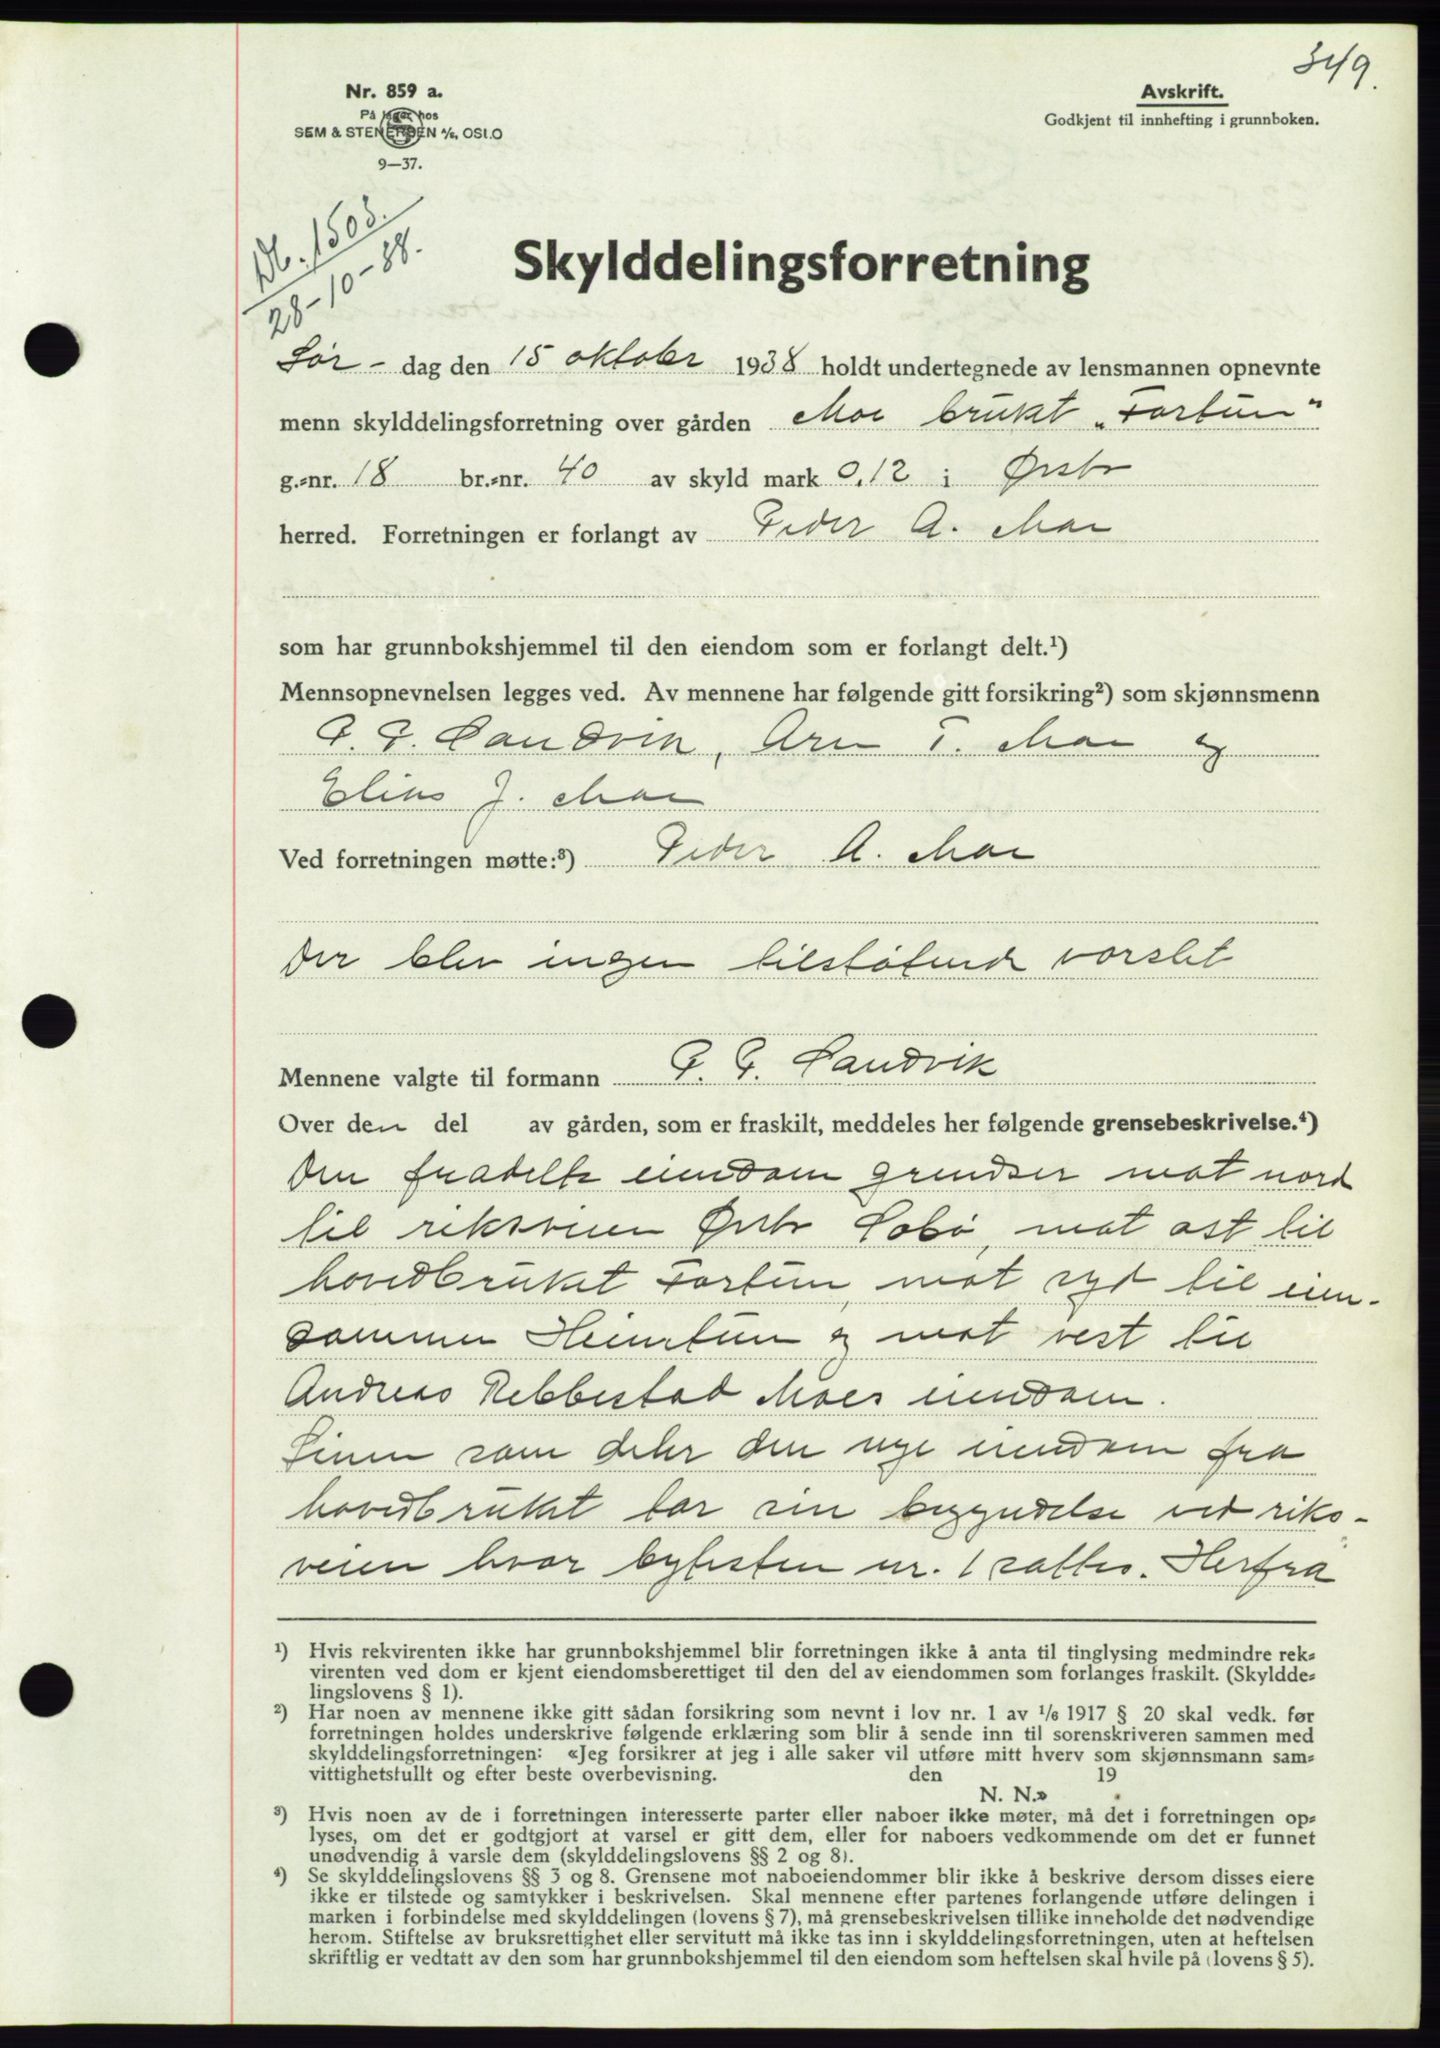 349.
Nr. 859 a.
På lager hos
SEM & STENERSEN A/S, OSLO
9—37.
Avskrift.
Godkjent til innhefting i grunnboken.
Db. 1503.
28-10-38.
Skylddelingsforretning
Lør- dag den 15 oktober 1938 holdt undertegnede av lensmannen opnevnte
menn skylddelingsforretning over gården Moe brukt „Fortun"
g.=nr. 18 br.=nr. 40 av skyld mark 0,12 i Ørsta
herred. Forretningen er forlangt av Peder A. Moe
som har grunnbokshjemmel til den eiendom som er forlangt delt.¹)
Mennsopnevnelsen legges ved. Av mennene har følgende gitt forsikring²) som skjønnsmenn
P. P. Sandvik, Arn T. Moe og
Elias J. Moe
Ved forretningen møtte:³) Peder A. Moe
Der blev ingen tilstøtende varslet
Mennene valgte til formann P. P. Sandvik
Over den del av gården, som er fraskilt, meddeles her følgende grensebeskrivelse.⁴)
Den fradelte eiendom grendser mot nord
til riksveien Ørsta Sæbø, mot øst til
hovedbruket Fortun, mot syd til eien-
dommen Heimtun og mot vest til
Andreas Rebbestad Moes eiendom.
Linen som deler den nye eiendom fra
hovedbruket tar sin begyndelse ved riks-
veien hvor bytesten nr. 1 sattes. Herfra
¹) Hvis rekvirenten ikke har grunnbokshjemmel blir forretningen ikke å anta til tinglysing medmindre rek=
virenten ved dom er kjent eiendomsberettiget til den del av eiendommen som forlanges fraskilt. (Skyldde=
lingslovens § 1).
²) Har noen av mennene ikke gitt sådan forsikring som nevnt i lov nr. 1 av 1/6 1917 § 20 skal vedk. før
forretningen holdes underskrive følgende erklæring som blir å sende inn til sorenskriveren sammen med
skylddelingsforretningen: «Jeg forsikrer at jeg i alle saker vil utføre mitt hverv som skjønnsmann sam=
vittighetsfullt og efter beste overbevisning. den 19
N. N.»
³) Hvis noen av de i forretningen interesserte parter eller naboer ikke møter, må det i forretningen op=
lyses, om det er godtgjort at varsel er gitt dem, eller for naboers vedkommende om det er funnet
unødvendig å varsle dem (skylddelingslovens §§ 2 og 8).
⁴) Se skylddelingslovens §§ 3 og 8. Grensene mot naboeiendommer blir ikke å beskrive dersom disses eiere
ikke er tilstede og samtykker i beskrivelsen. Skal mennene efter partenes forlangende utføre delingen i
marken i forbindelse med skylddelingen (lovens § 7), må grensebeskrivelsen tillike inneholde det nødvendige
herom. Stiftelse av bruksrettighet eller servitutt må ikke tas inn i skylddelingsforretningen, uten at heftelsen
skriftlig er vedtatt av den som har grunnbokshjemmel til den eiendom som heftelsen skal hvile på (lovens § 5).